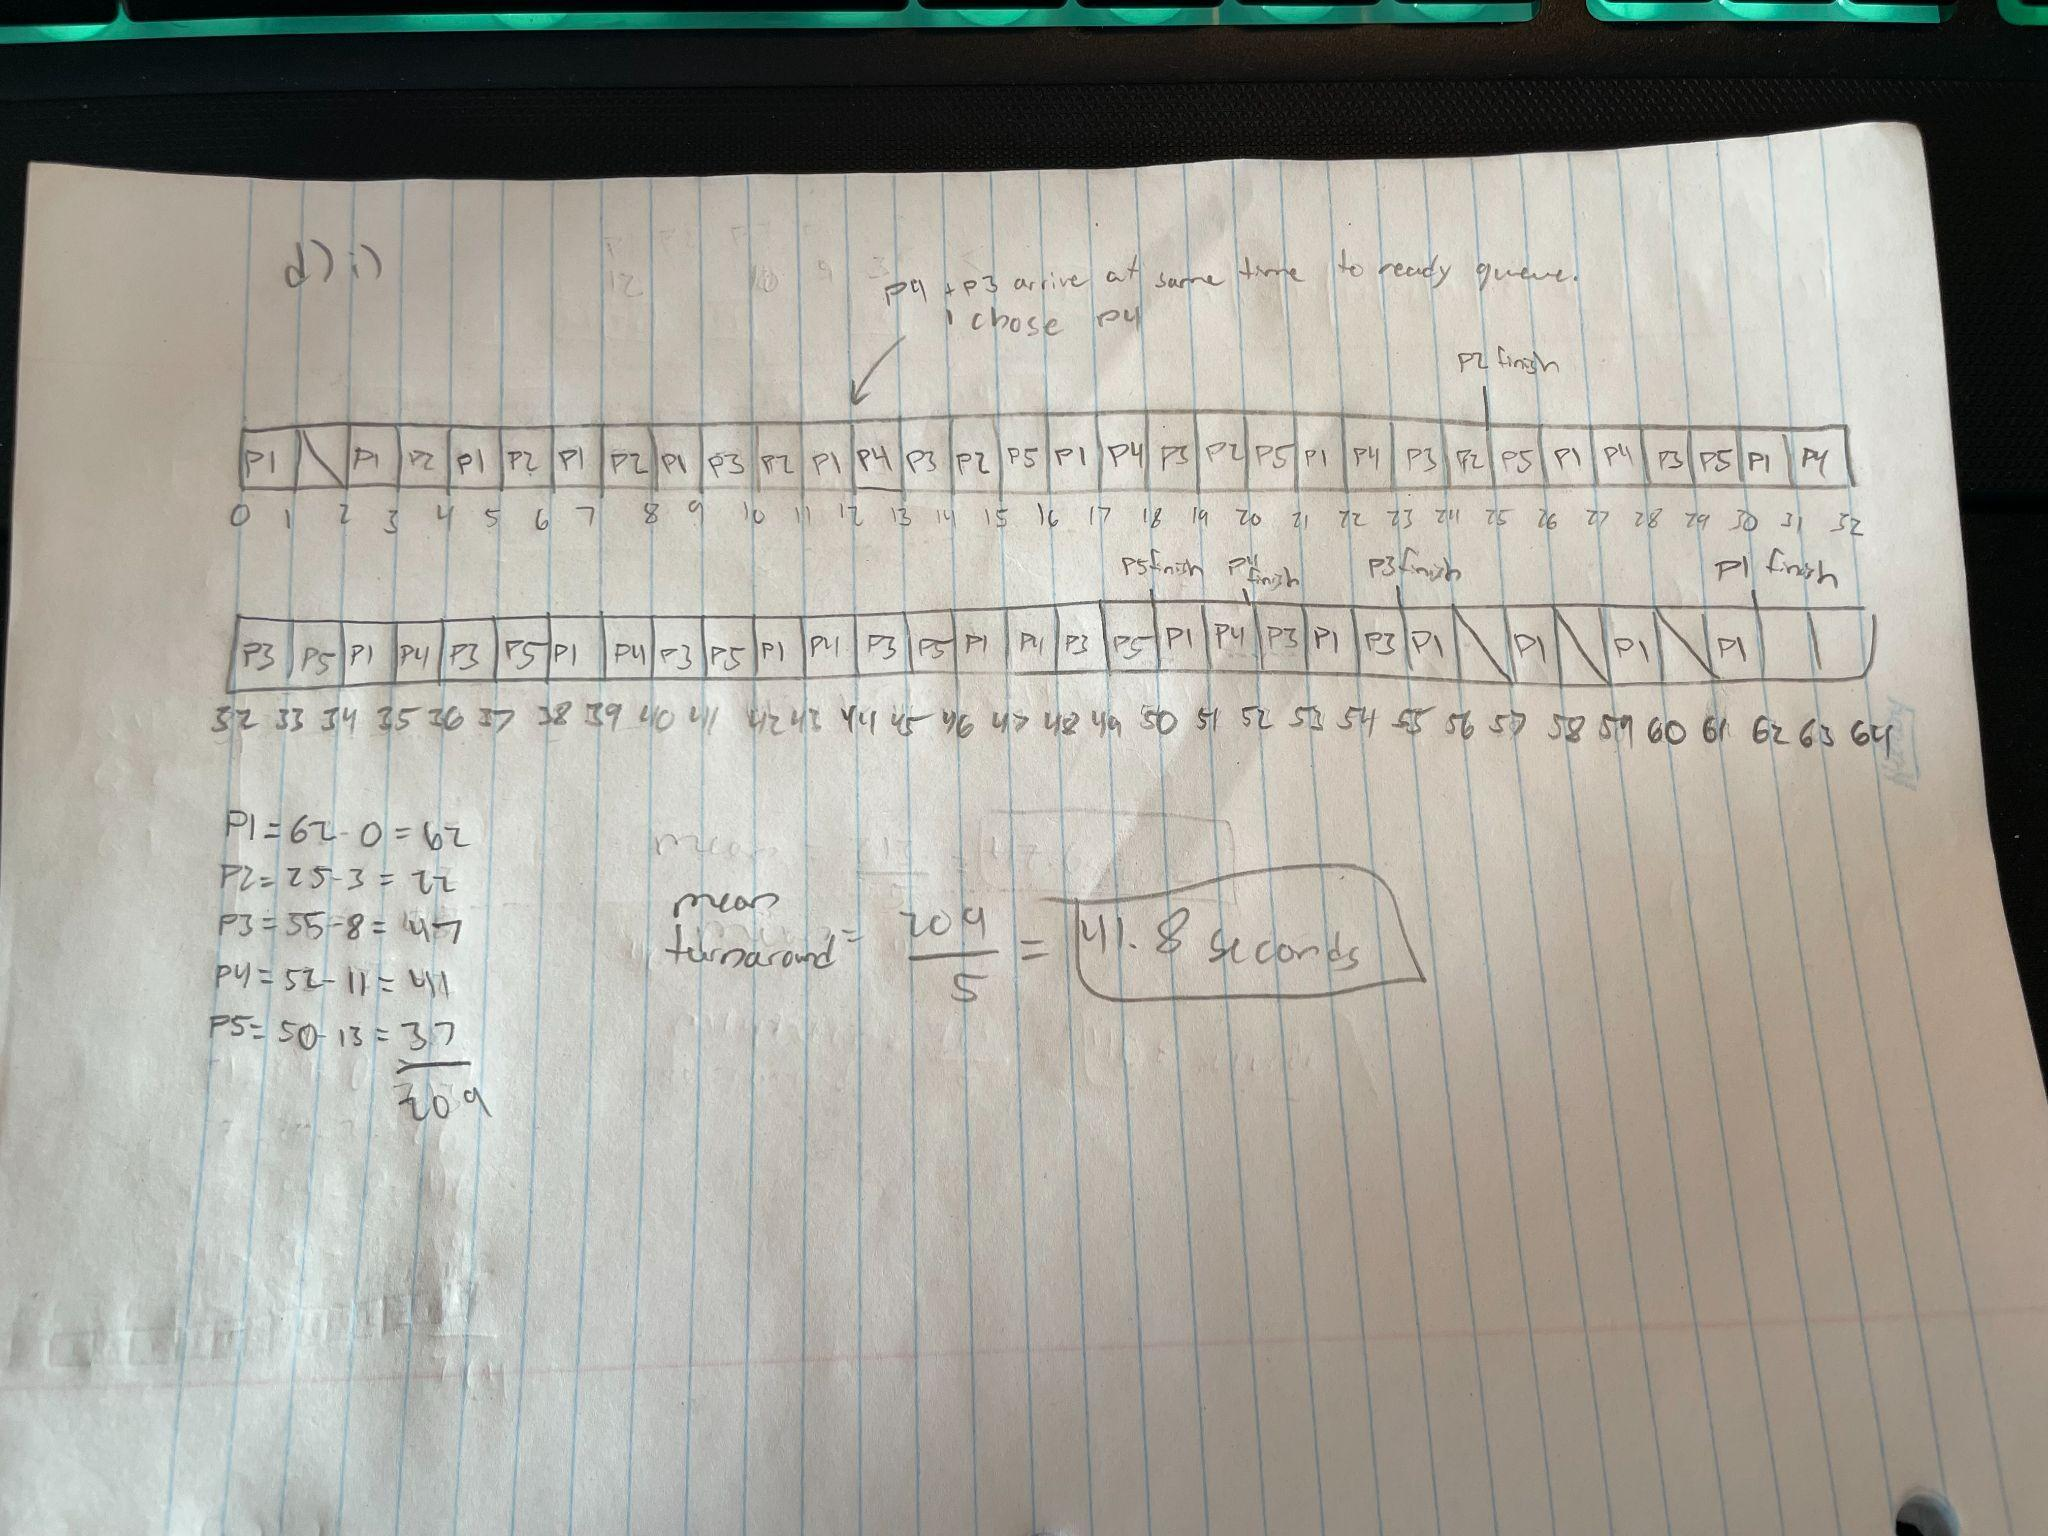 d) i)
P4 + P3 arrive at same time to ready queue.
i chose P4
P2 finish
P1 P1 P2 P1 P2 P1 P2 P1 P3 P2 P1 P4 P3 P2 P5 P1 P4 P3 P2 P5 P1 P4 P3 P2 P5 P1 P4 P3 P5 P1 P4
0 1 2 3 4 5 6 7 8 9 10 11 12 13 14 15 16 17 18 19 20 21 22 23 24 25 26 27 28 29 30 31 32
P5 finish P4 finish P3 finish P1 finish
P3 P5 P1 P4 P3 P5 P1 P4 P3 P5 P1 P4 P3 P5 P1 P4 P3 P5 P1 P4 P3 P1 P3 P1 P1 P1 P1
32 33 34 35 36 37 38 39 40 41 42 43 44 45 46 47 48 49 50 51 52 53 54 55 56 57 58 59 60 61 62 63 64
P1 = 62 - 0 = 62
P2 = 25 - 3 = 22
P3 = 55 - 8 = 47
P4 = 52 - 11 = 41
P5 = 50 - 13 = 37
209
mean turnaround = 209 / 5 = 41.8 seconds